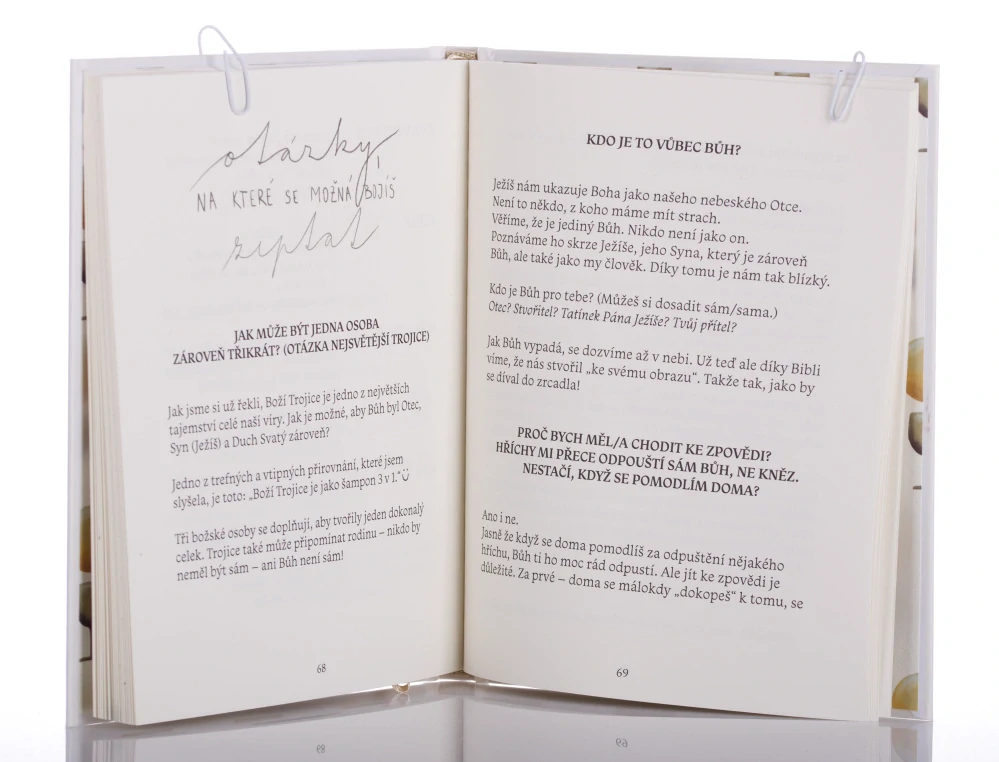 otázky,
NA KTERÉ SE MOŽNÁ BOJÍŠ
zeptat
JAK MŮŽE BÝT JEDNA OSOBA
ZÁROVEŇ TŘIKRÁT? (OTÁZKA NEJSVĚTĚJŠÍ TROJICE)
Jak jsme si už řekli, Boží Trojice je jedno z největších
tajemství celé naší víry. Jak je možné, aby Bůh byl Otec,
Syn (Ježíš) a Duch Svatý zároveň?
Jedno z trefných a vtipných přirovnání, které jsem
slyšela, je toto: „Boží Trojice je jako šampon 3 v 1.“
Tři božské osoby se doplňují, aby tvořily jeden dokonalý
celek. Trojice také může připomínat rodinu – nikdo by
neměl být sám – ani Bůh není sám!
68
KDO JE TO VŮBEC BŮH?
Ježíš nám ukazuje Boha jako našeho nebeského Otce.
Není to někdo, z koho máme mít strach.
Věříme, že je jediný Bůh. Nikdo není jako on.
Poznáváme ho skrze Ježíše, jeho Syna, který je zároveň
Bůh, ale také jako my člověk. Díky tomu je nám tak blízký.
Kdo je Bůh pro tebe? (Můžeš si dosadit sám/sama.)
Otec? Stvořitel? Tatínek Pána Ježíše? Tvůj přítel?
Jak Bůh vypadá, se dozvíme až v nebi. Už teď ale díky Bibli
víme, že nás stvořil „ke svému obrazu“. Takže tak, jako by
se díval do zrcadla!
PROČ BYCH MĚL/A CHODIT KE ZPOVĚDI?
HŘÍCHY MI PŘECE ODPOUŠTÍ SÁM BŮH, NE KNĚZ.
NESTAČÍ, KDYŽ SE POMODLÍM DOMA?
Ano i ne.
Jasně že když se doma pomodlíš za odpuštění nějakého
hříchu, Bůh ti ho moc rád odpustí. Ale jít ke zpovědi je
důležité. Za prvé – doma se málokdy „dokopeš“ k tomu, se
69